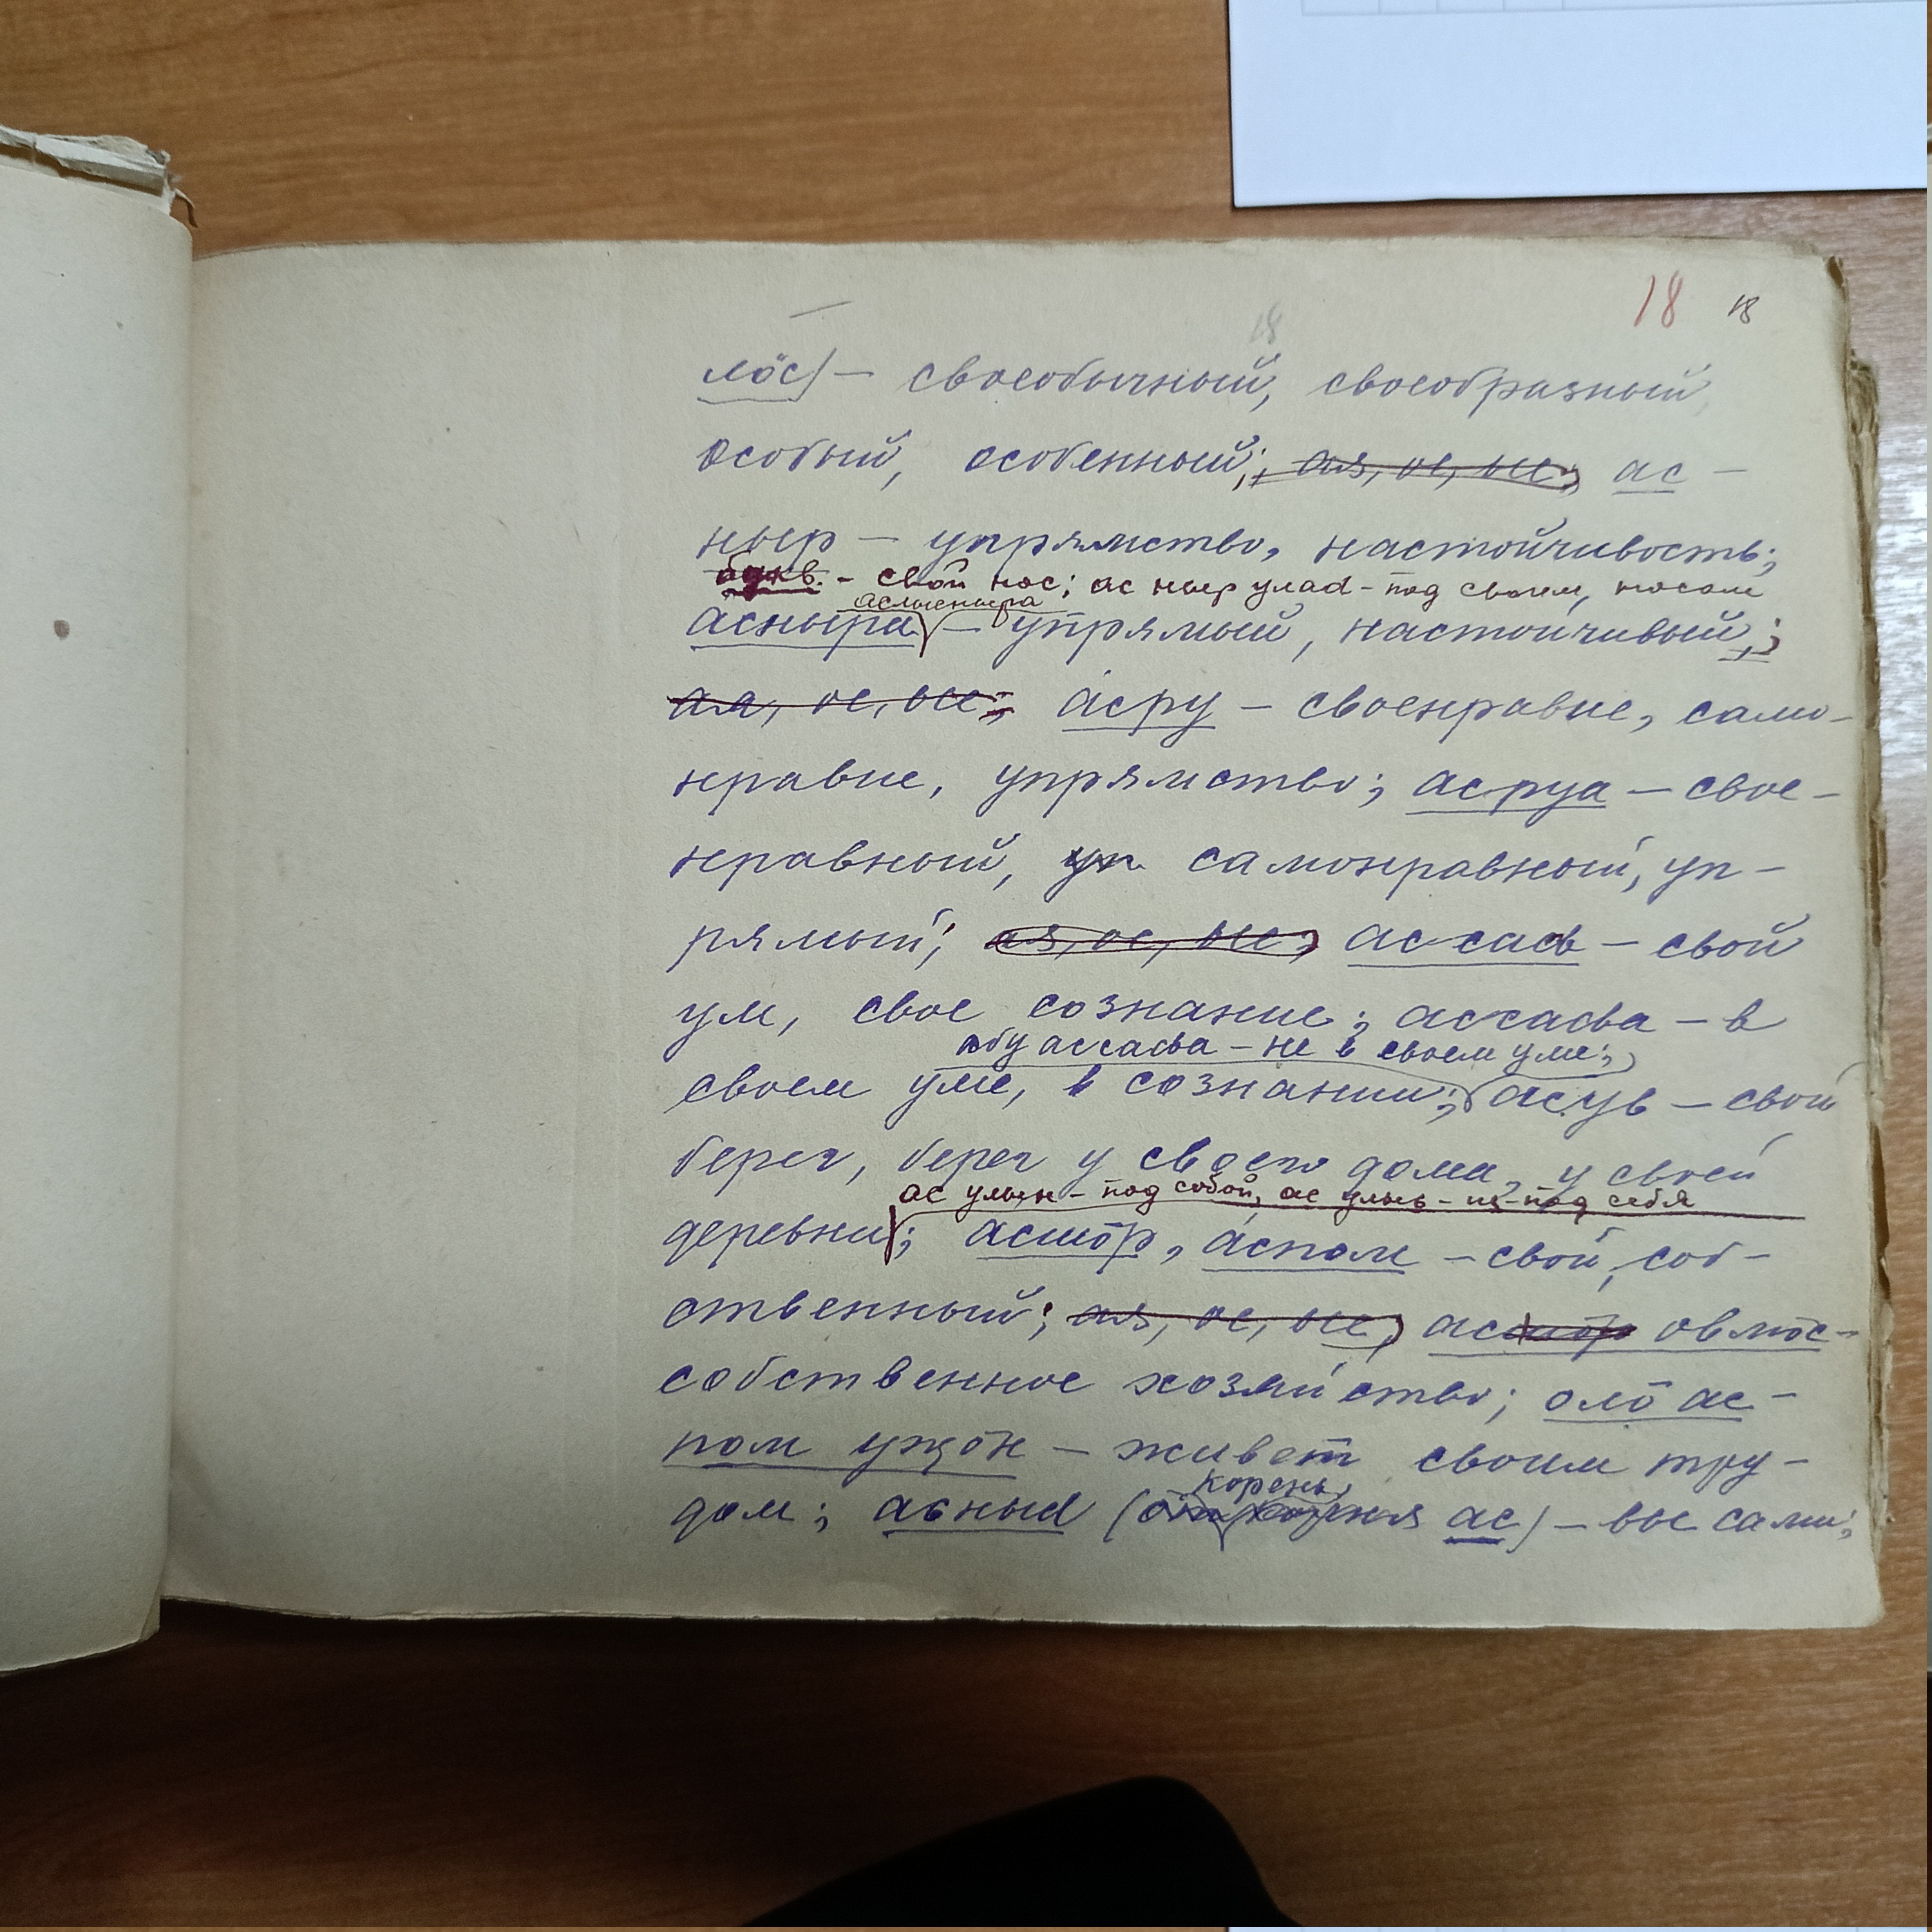 18 18
18
лӧс) — своеобычный, своеобразный,
особый, особенный; ая, ое, ые; ас —
ныр — упрямство, настойчивость;
букв. - свой нос; ас ныр улад - под своем, носом
асныра
асныра — упрямый, настойчивый;
ая, ое, ые; áсру — своенравие, само-
нравие, упрямство; асруа — свое-
нравный, уп самонравный, уп-
рямый; ая, ое, ые; ассаԁ — свой
ум, свое сознание; — в
абу — не в своем уме;
своем уме, в сознании; асув — свой
берег, берег у своего дома, у своей
ас улын - под собой, ас улыԍ - из-под себя
деревни; асшӧр, áспом — свой, соб-
ственный; ая, ое, ые; асшӧр овмӧс-
собственное хозяйство; олӧ ас-
пом уҗӧн — живет своим тру-
корень
дом; асныԁ (от корня ас) — вы сами;